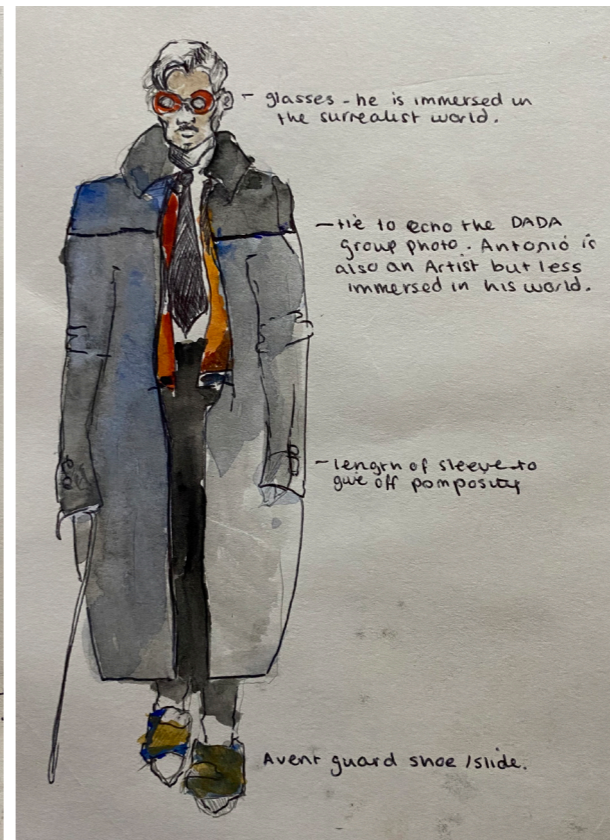 glasses - he is immersed in
the surrealist world.
- tie to echo the DADA
group photo. Antonio is
also an Artist but less
immersed in his world.
- length of sleeve to
give off pomposity
Avent guard shoe /slide.